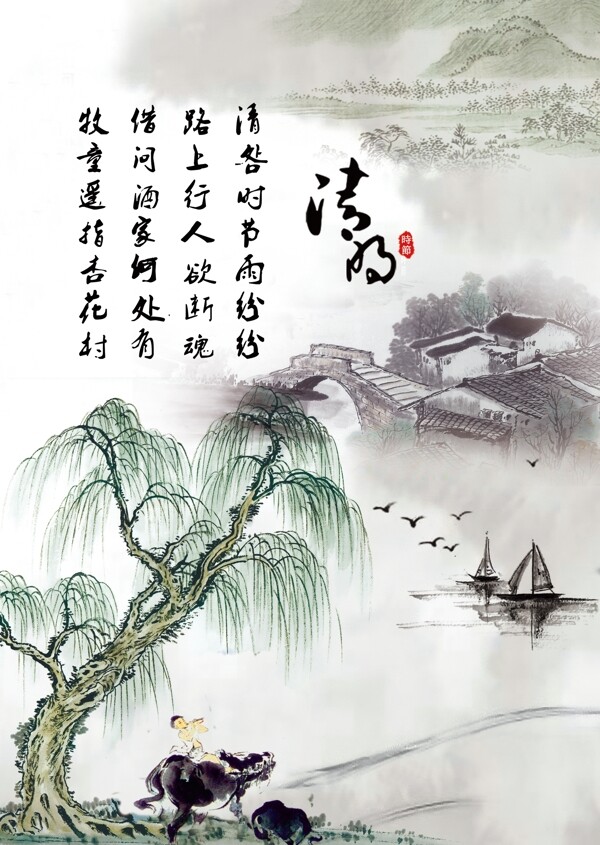 清时节雨纷纷
路上行人欲断魂
借问酒家何处有
牧童遥指杏花村
清明
時節